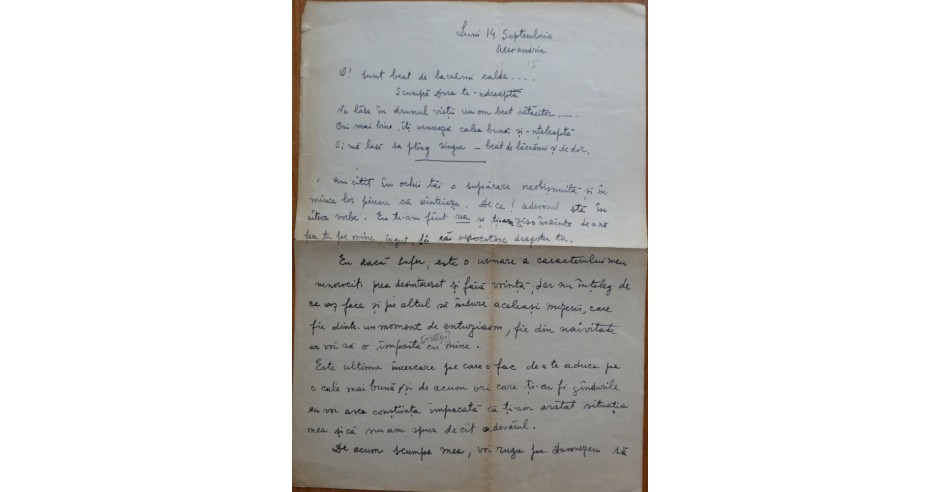 Luni 14 Septembrie
Alexandria
15
O! sunt beat de lacrămi calde....
Scumpă Dora te-ndreaptă
Nu lăsa în drumul vieții un om beat
Ori mai bine, îți urmează calea bună și-nțeleaptă
Și mă lasă să plâng singur – beat de lăcrămi și de dor.
Am citit în ochii tăi o supărare neobișnuită și în
mintea lor păreau că scînteiază. De ce! adevărul stă în
câteva vorbe. Eu te-am făcut rea și înainte de a
pe mine dreptu ta.
Eu dacă sufer, este o urmare a caracterului meu
nenorocit, prea desinteresat și fără voință, dar nu înțeleg de
ce aș face și pe altul să îndure aceleași mizerii, care
fie dintr-un moment de entuziasm, fie din naivitate
ar voi să o împartă cu mine.
Este ultima încercare pe care o fac de a te aduce pe
o cale mai bună și de acum ori care ți-ar fi gîndurile
eu voi avea conștiința împăcată că ți-am arătat situația
mea și că nu am spus decit adevărul.
De acum scumpa mea, voi ruga pe Dumnezeu să